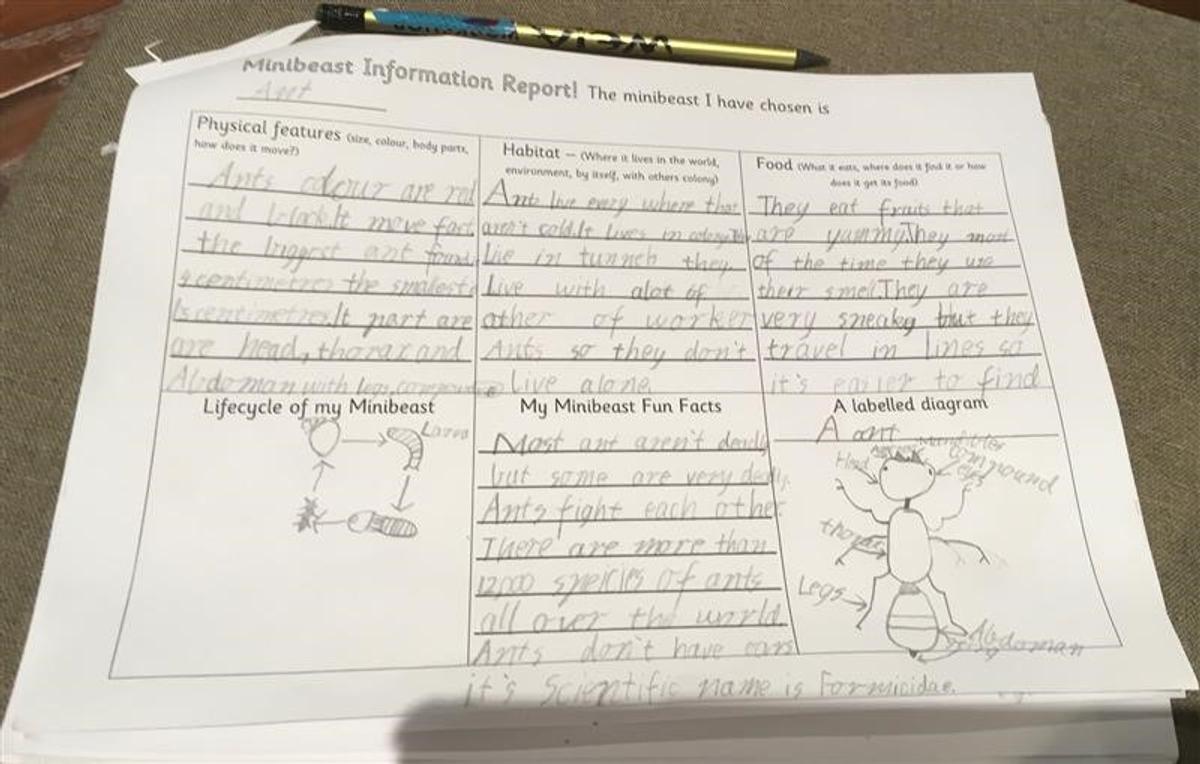 Minibeast Information Report! The minibeast I have chosen is
Ant
Physical features (size, colour, body parts,
how does it move?)
Ants colour are red
and black.It move fast
the biggest ant found
centimetres the smallest
centimetres.It part are
are head, thorax and
Abdoman with legs,
Habitat – (Where it lives in the world,
environment, by itself, with others colony)
Ants live every where that
aren't cold.It lives in colony
live in tunnels they
Live with alot of
other of worker
Ants so they don't
Live alone.
Food (What it eats, where does it find it or how
does it get its food)
They eat fruits that
are yammy.They most
of the time they use
their smell.They are
very sneaky but they
travel in lines so
it's easier to find
Lifecycle of my Minibeast
Larva
My Minibeast Fun Facts
Most ant aren't deadly
but some are very
Ants fight each other
There are more than
12000 species of ants
all over the world.
Ants don't have ears
it's Scientific name is Formicidae.
A labelled diagram
A ant
Mandibles
Head
compound
eyes
thorax
Legs
Abdoman